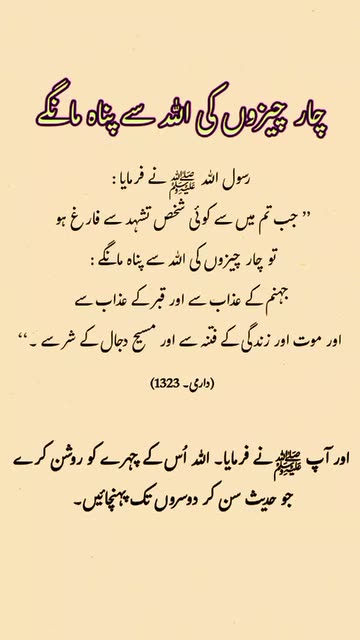 چار چیزوں کی اللہ سے پناہ مانگے
رسول اللہ ﷺ نے فرمایا :
” جب تم میں سے کوئی شخص تشہد سے فارغ ہو
تو چار چیزوں کی اللہ سے پناہ مانگے :
جہنم کے عذاب سے اور قبر کے عذاب سے
اور موت اور زندگی کے فتنہ سے اور مسیح دجال کے شر سے ۔“
(داری۔ 1323)
اور آپ ﷺ نے فرمایا۔ اللہ اُس کے چہرے کو روشن کرے
جو حدیث سن کر دوسروں تک پہنچائیں۔